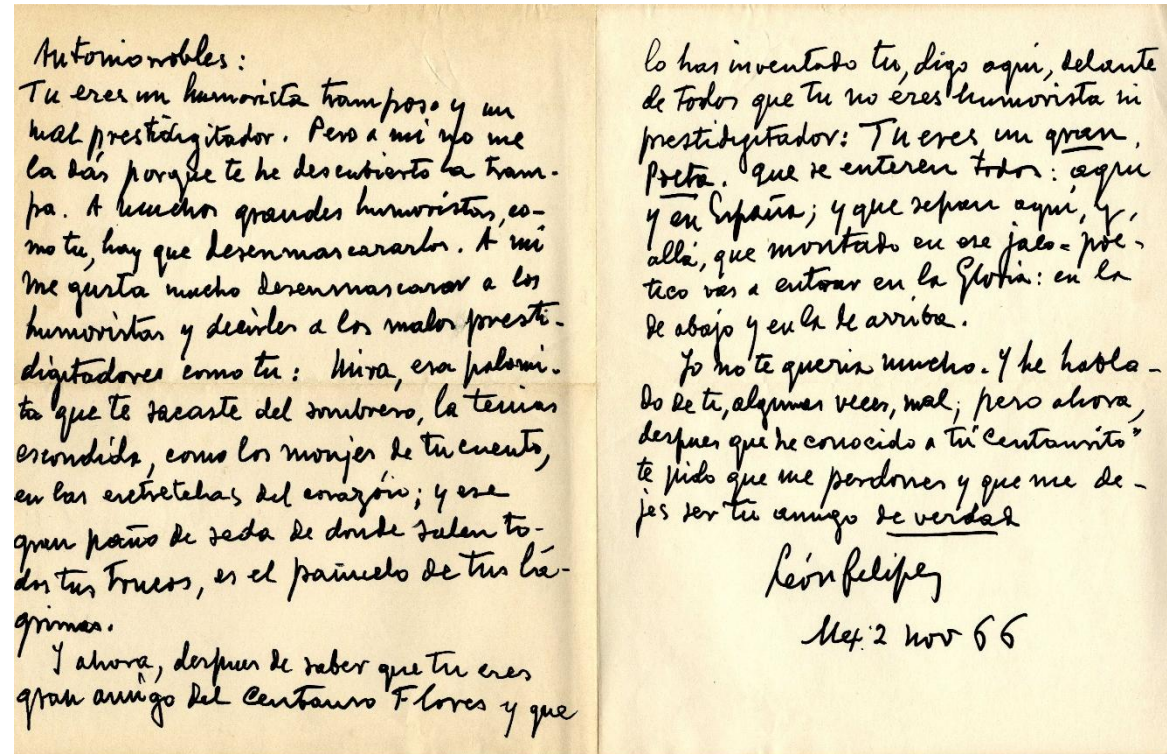 Antoniorrobles:
Tu eres un humorista tramposo y un
mal prestidigitador. Pero a mi no me
la dás porque te he descubierto la tram-
pa. A muchos grandes humoristas, co-
mo tu, hay que desenmascararlos. A mi
me gusta mucho desenmascarar a los
humoristas y decirles a los malos presti-
digitadores como tu: Mira, esa palomi-
ta que te sacaste del sombrero, la tenias
escondida, como los monjes de tu cuento,
en las entretelas del corazón; y ese
gran paño de seda de donde salen to-
dos tus trucos, es el pañuelo de tus lá-
grimas.
Y ahora, despues de saber que tu eres
gran amigo del Centauro Flores y que
lo has inventado tu, digo aqui, delante
de todos que tu no eres humorista ni
prestidigitador: Tu eres un gran
Poeta. Que se enteren todos: aqui
y en España; y que sepan aqui, y,
allá, que montado en ese jaco-poé-
tico vas a entrar en la Gloria: en la
de abajo y en la de arriba.
Yo no te queria mucho. Y he habla-
do de ti, algunas veces, mal; pero ahora,
despues que he conocido a tu "Centaurito"
te pido que me perdones y que me de-
jes ser tu amigo de verdad
León Felipe
Mex. 2 nov 66